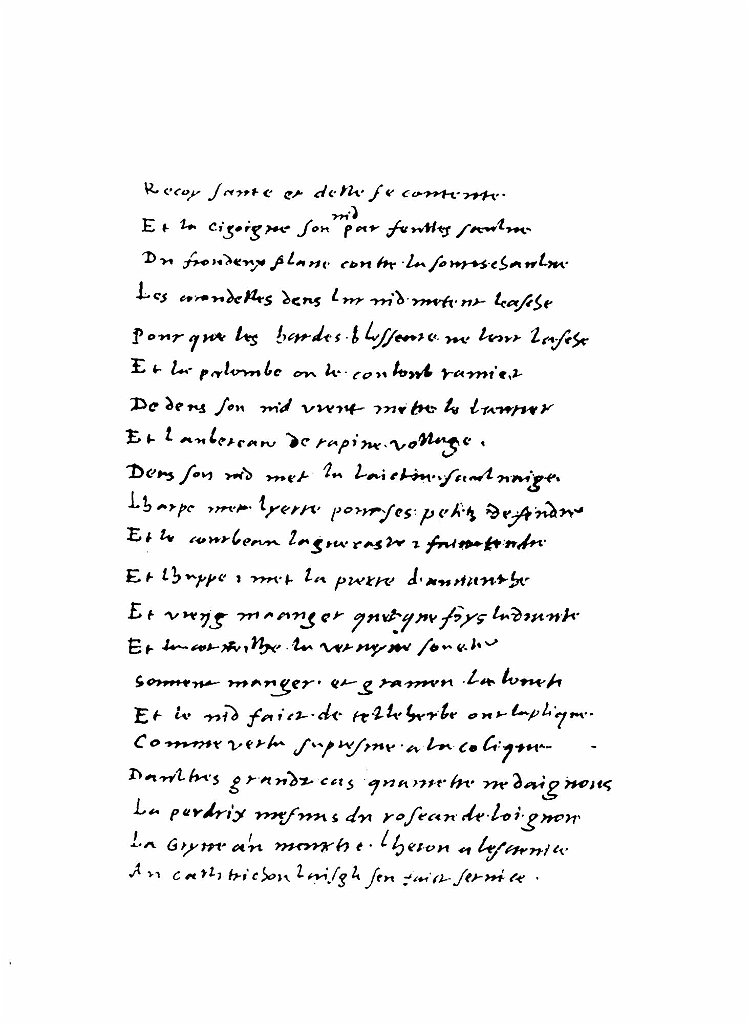 Recoy sante et delle se contente.
Et la cigoigne son nid par feulles saulue
Du frondeux plane contre la sourischaulue
Les arondelles dens lur nid metent leasche
Pour que les bardes blessente ne leur lasche
Et la palombe ou le coulomb ramier
De dens son nid vient metre le laurier
Et lautercau de rapine vollage.
Dens son nid met la laictue saulnaige.
Lharpe met lyerre pour ses petitz defendre
Et le courbeau lagnecaste i faict tendre
Et lhuppe i met la pierre damianthe
Et vieng maanger quelque foys ladiante
Et la verueyne souche
Souuent manger et gramen la louch
Et le nid faict de telleherbe ont laplique.
Comme vertu supresme a la colique
Daultres grandz cas quametre ne daignous
La perdrix mesmus du roseau de loignon
La Gryue an meurthe lheron a lescreuice
Au callitrichon loisgh sen faict seruice.